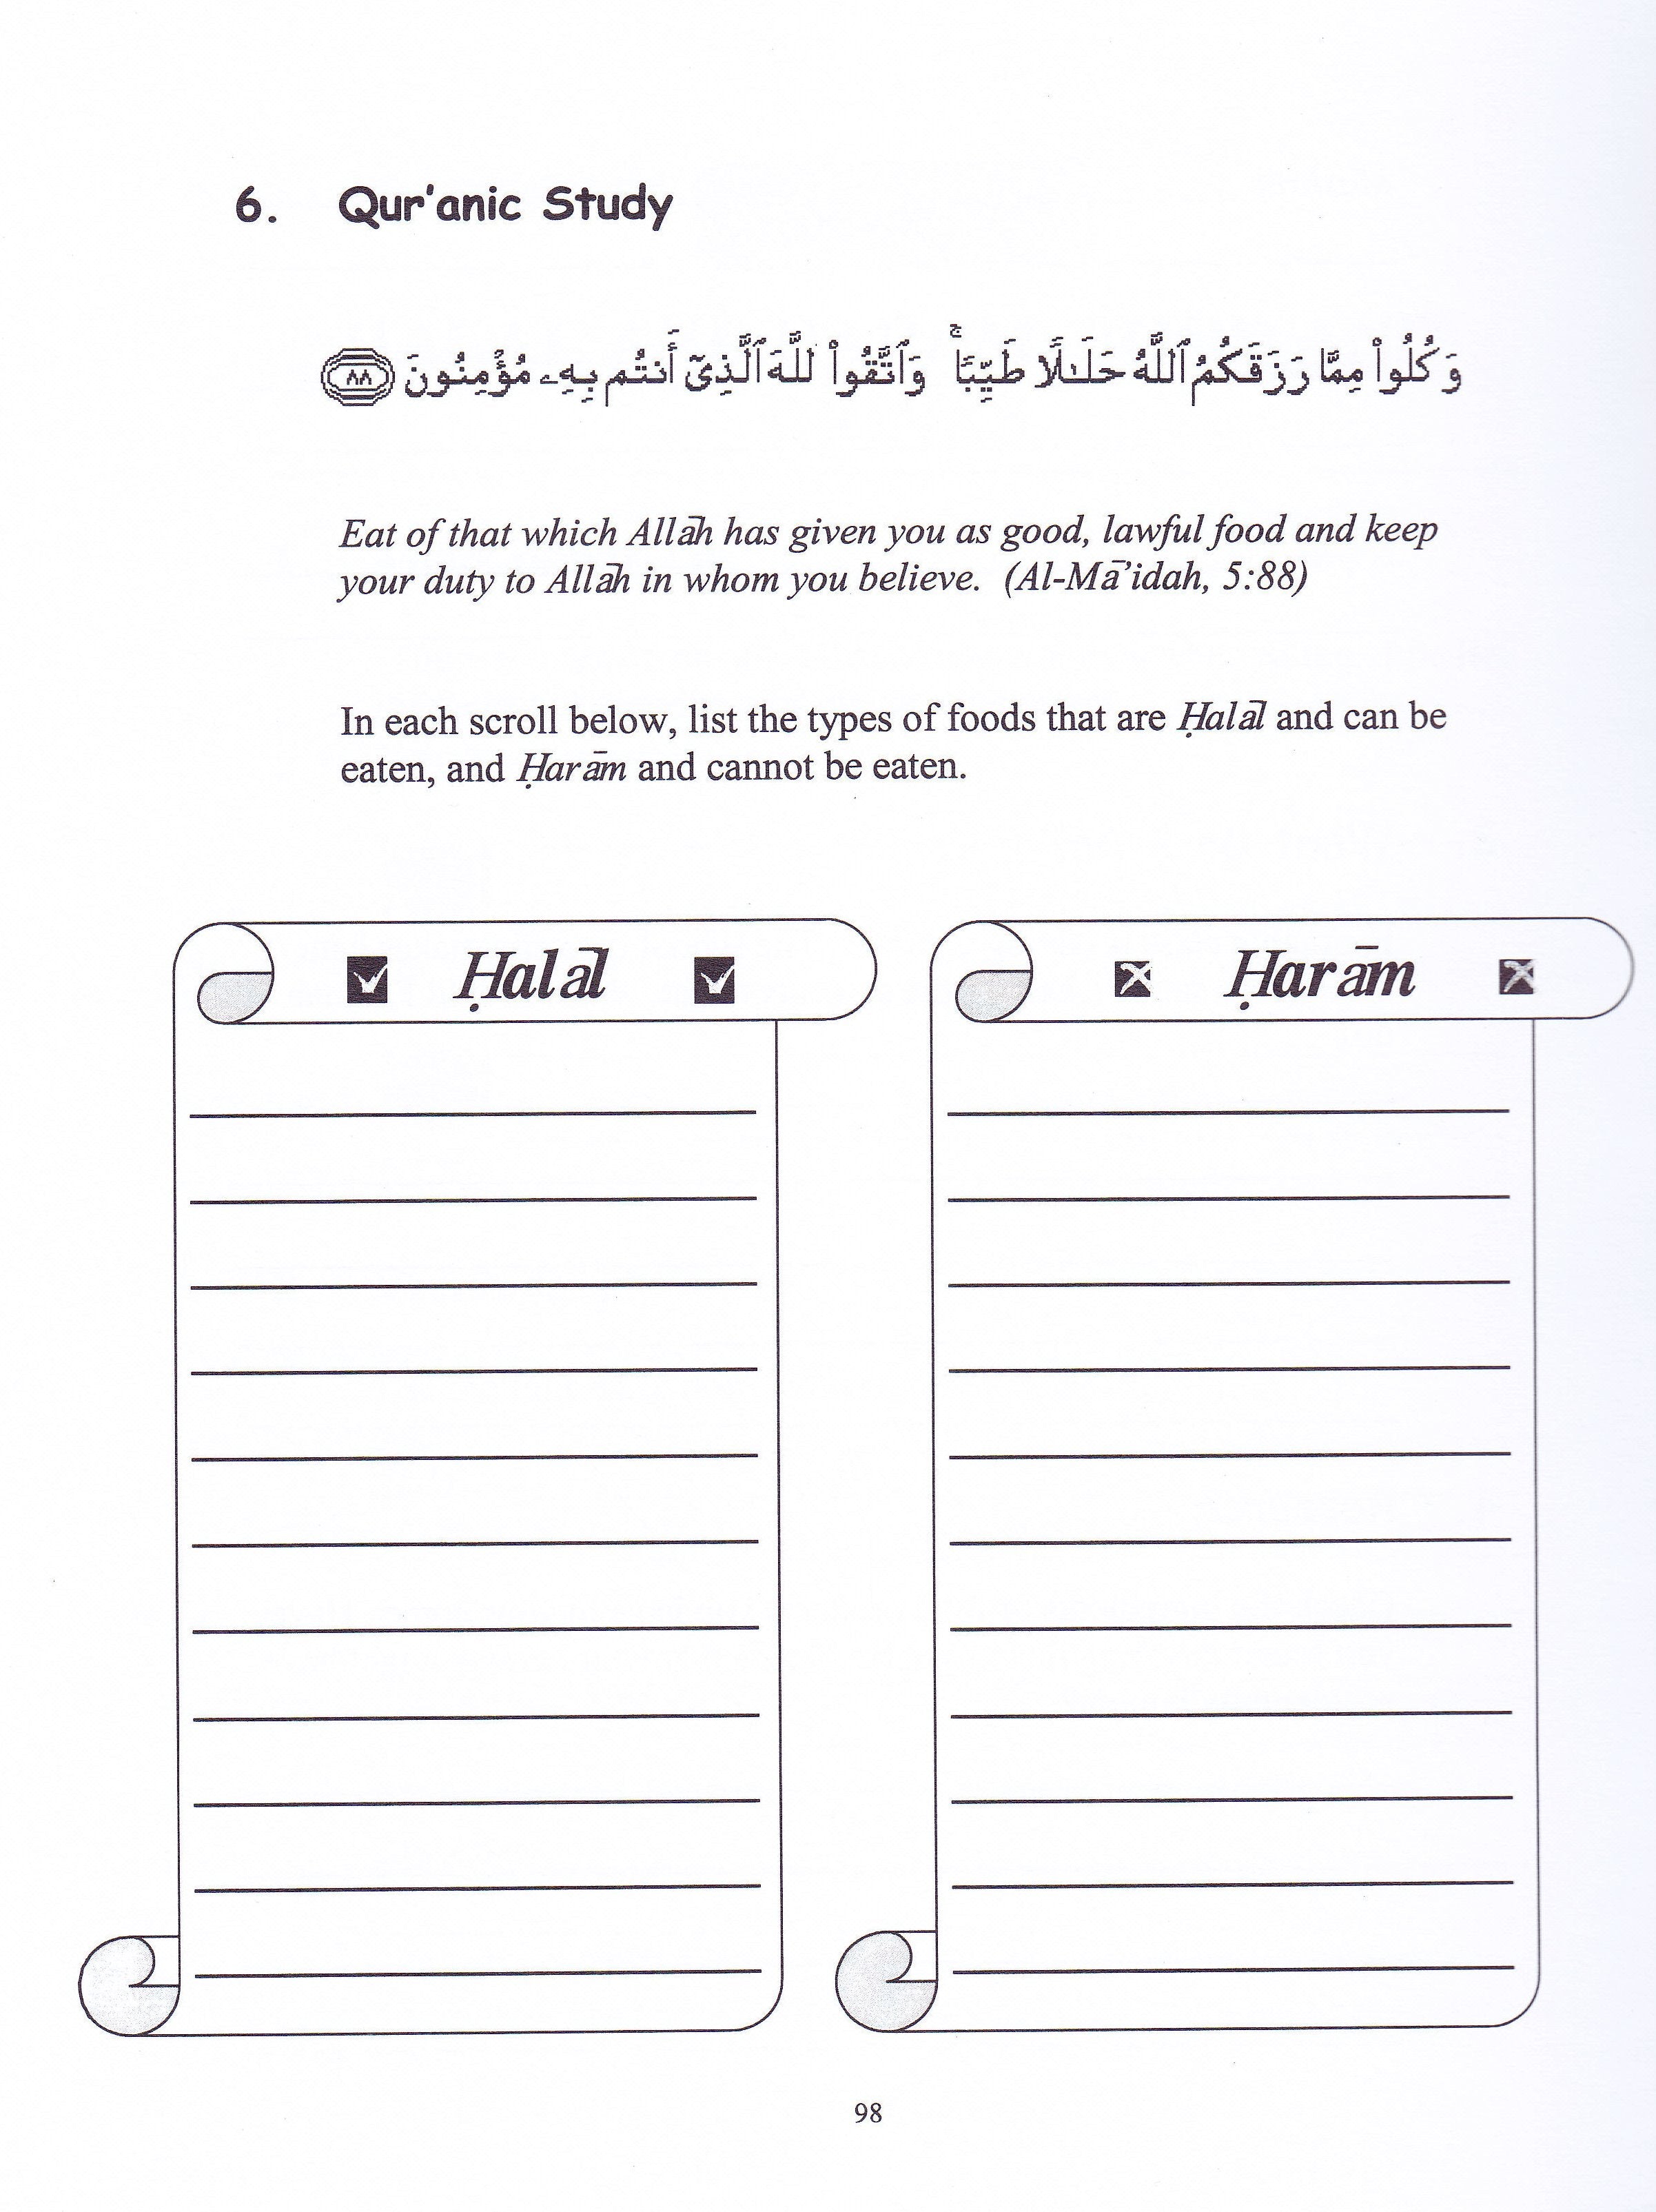 6. Qur'anic Study
وَكُلُوا۟ مِمَّا رَزَقَكُمُ ٱللَّهُ حَلَـٰلًا طَيِّبًا ۚ وَٱتَّقُوا۟ ٱللَّهَ ٱلَّذِىٓ أَنتُم بِهِۦ مُؤْمِنُونَ ٨٨
Eat of that which Allāh has given you as good, lawful food and keep
your duty to Allāh in whom you believe. (Al-Mā'idah, 5:88)
In each scroll below, list the types of foods that are Ḥalāl and can be
eaten, and Ḥarām and cannot be eaten.
Ḥalāl
Ḥarām
98